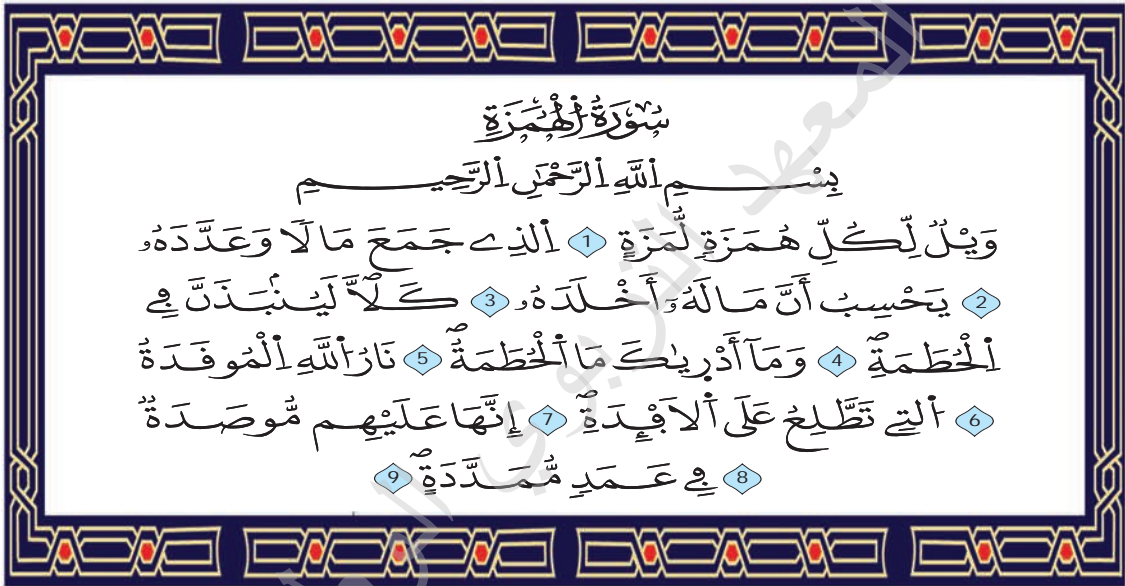 سُورَةُ اُ۬لْهُمَزَةِ
بِسْمِ اِ۬للَّهِ اِ۬لرَّحْمَٰنِ اِ۬لرَّحِيمِ
وَيْلٞ لِّكُلِّ هُمَزَةٖ لُّمَزَةٍ 1 اِ۬لذِے جَمَعَ مَالاٗ وَعَدَّدَهُۥ
2 يَحْسِبُ أَنَّ مَالَهُۥٓ أَخْلَدَهُۥ 3 كَلَّاۖ لَيُنۢبَذَنَّ فِے
اِ۬لْحُطَمَةِۖ 4 وَمَآ أَدْر۪يٰكَ مَا اَ۬لْحُطَمَةُۖ 5 نَارُ اُ۬للَّهِ اِ۬لْمُوقَدَةُ
6 اُ۬لتِے تَطَّلِعُ عَلَى اَ۬لَافْـِٕدَةِۖ 7 إِنَّهَا عَلَيْهِم مُّوصَدَةٞ
8 فِے عَمَدٖ مُّمَدَّدَةٖۖ 9
المعهد التربوي